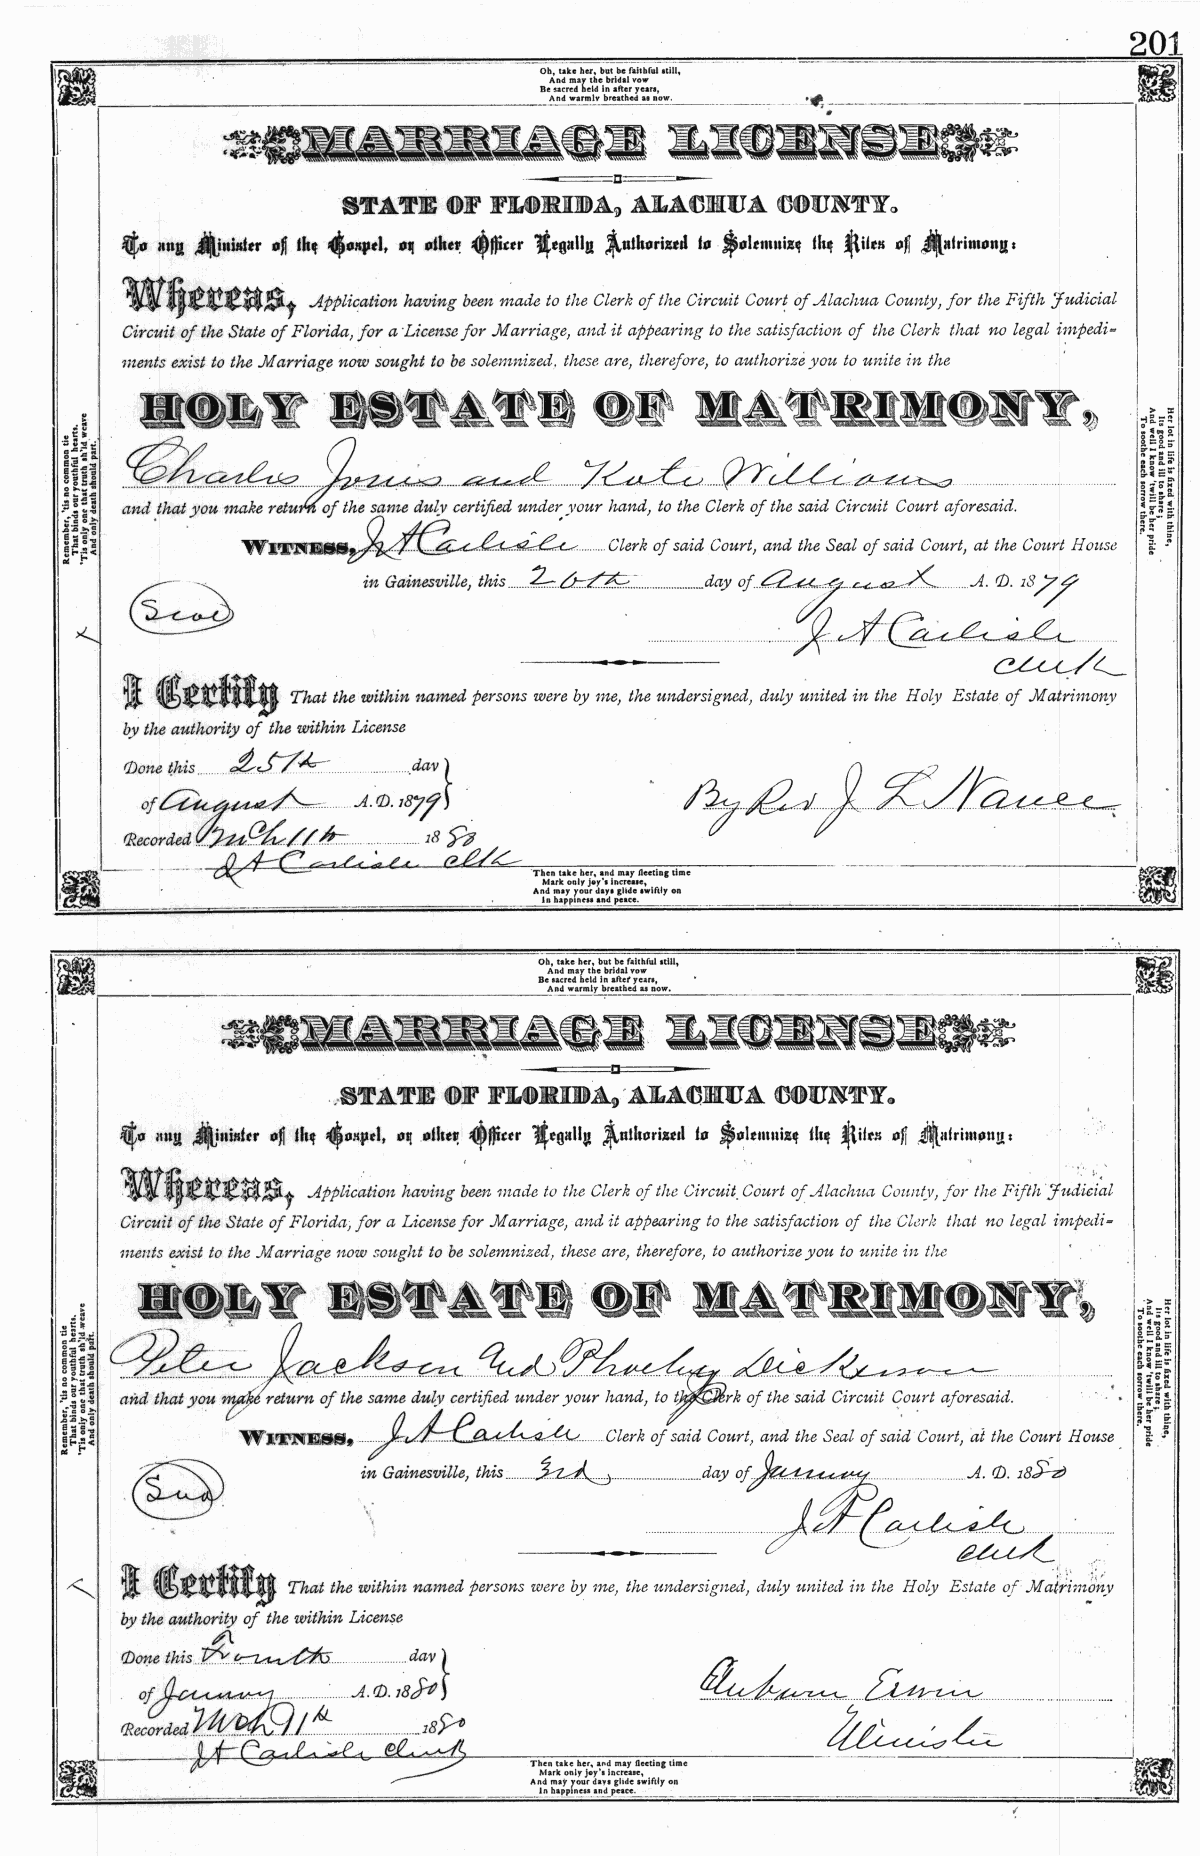 201
Oh, take her, but be faithful still,
And may the bridal vow
Be sacred held in after years,
And warmly breathed as now.
MARRIAGE LICENSE
STATE OF FLORIDA, ALACHUA COUNTY.
To any Minister of the Gospel, or other Officer Legally Authorized to Solemnize the Rites of Matrimony:
Whereas, Application having been made to the Clerk of the Circuit Court of Alachua County, for the Fifth Judicial
Circuit of the State of Florida, for a License for Marriage, and it appearing to the satisfaction of the Clerk that no legal impedi-
ments exist to the Marriage now sought to be solemnized, these are, therefore, to authorize you to unite in the
HOLY ESTATE OF MATRIMONY,
Charles Jones and Kate Williams
and that you make return of the same duly certified under your hand, to the Clerk of the said Circuit Court aforesaid.
WITNESS, J A Carlisle Clerk of said Court, and the Seal of said Court, at the Court House
in Gainesville, this 20th day of August A. D. 1879
Seal
J A Carlisle
Clerk
I Certify That the within named persons were by me, the undersigned, duly united in the Holy Estate of Matrimony
by the authority of the within License
Done this 25th day
of August A. D. 1879
By Rev J L Nance
Recorded Mch 11th 1880
J A Carlisle Clk
Then take her, and may fleeting time
Mark only joy's increase,
And may your days glide swiftly on
In happiness and peace.
Remember, 'tis no common tie
That binds our youthful hearts,
'Tis only one that truth sh'ld weave
And only death should part.
Her lot in life is fixed with thine,
Its good and ill to share;
And well I know 'twill be her pride
To soothe each sorrow there.
Oh, take her, but be faithful still,
And may the bridal vow
Be sacred held in after years,
And warmly breathed as now.
MARRIAGE LICENSE
STATE OF FLORIDA, ALACHUA COUNTY.
To any Minister of the Gospel, or other Officer Legally Authorized to Solemnize the Rites of Matrimony:
Whereas, Application having been made to the Clerk of the Circuit Court of Alachua County, for the Fifth Judicial
Circuit of the State of Florida, for a License for Marriage, and it appearing to the satisfaction of the Clerk that no legal impedi-
ments exist to the Marriage now sought to be solemnized, these are, therefore, to authorize you to unite in the
HOLY ESTATE OF MATRIMONY,
Peter Jackson and Phoebey Dickerson
and that you make return of the same duly certified under your hand, to the Clerk of the said Circuit Court aforesaid.
WITNESS, J A Carlisle Clerk of said Court, and the Seal of said Court, at the Court House
in Gainesville, this 3rd day of January A. D. 1880
Seal
J A Carlisle
Clerk
I Certify That the within named persons were by me, the undersigned, duly united in the Holy Estate of Matrimony
by the authority of the within License
Done this Fourth day
of January A. D. 1880
Auburn Erwin
Minister
Recorded Mch 11th 1880
J A Carlisle Clerk
Then take her, and may fleeting time
Mark only joy's increase,
And may your days glide swiftly on
In happiness and peace.
Remember, 'tis no common tie
That binds our youthful hearts,
'Tis only one that truth sh'ld weave
And only death should part.
Her lot in life is fixed with thine,
Its good and ill to share;
And well I know 'twill be her pride
To soothe each sorrow there.